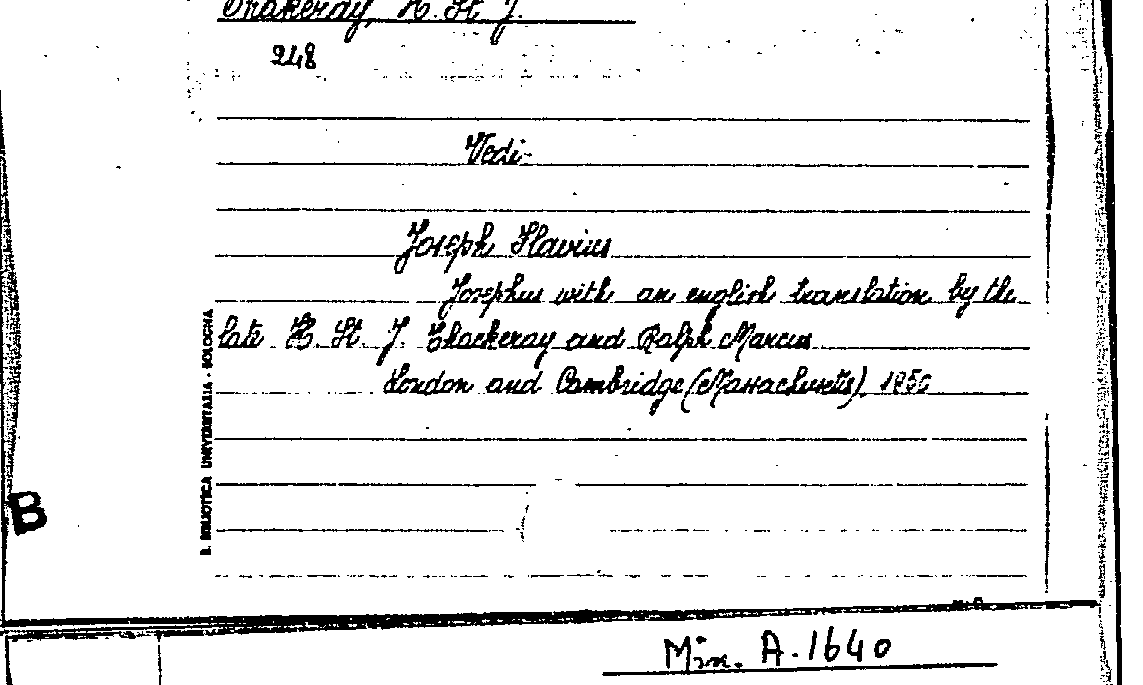 Thakeray, H. St. J.
248
Vedi:
Joseph Flavius
Josephus with an english translation by the
late H. St. J. Thackeray and Ralph Marcus
London and Cambridge (Massachusetts), 1950
B. BIBLIOTECA UNIVERSITARIA - BOLOGNA
B
Min. A. 1640